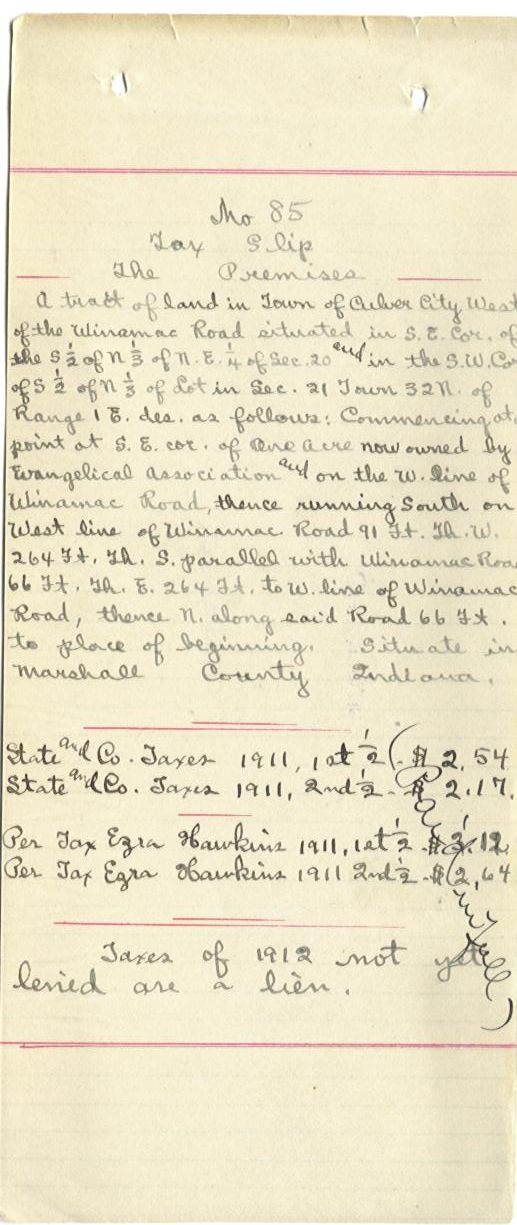 No 85
Tax Slip
The Premises
A tract of land in Town of Culver City West
of the Winamac Road situated in S.E. Cor. of
the S ½ of N ⅓ of N.E. ¼ of Sec. 20 and in the S.W. Cor
of S ½ of N ⅓ of Lot in Sec. 21 Town 32 N. of
Range 1 E. des. as follows: Commencing at
point at S.E. cor. of One Acre now owned by
Evangelical Association and on the W. line of
Winamac Road, thence running South on
West line of Winamac Road 91 Ft. Th. W.
264 Ft. Th. S. parallel with Winamac Road
66 Ft. Th. E. 264 Ft. to W. line of Winamac
Road, thence N. along said Road 66 Ft.
to place of beginning. Situate in
Marshall County Indiana.
State and Co. Taxes 1911, 1st ½ - $ 2.54
State and Co. Taxes 1911, 2nd ½ - $ 2.17.
Per Tax Ezra Hawkins 1911, 1st ½ - $3.12,
Per Tax Ezra Hawkins 1911 2nd ½ - $2,64
(Paid in full)
Taxes of 1912 not yet
levied are a lien.